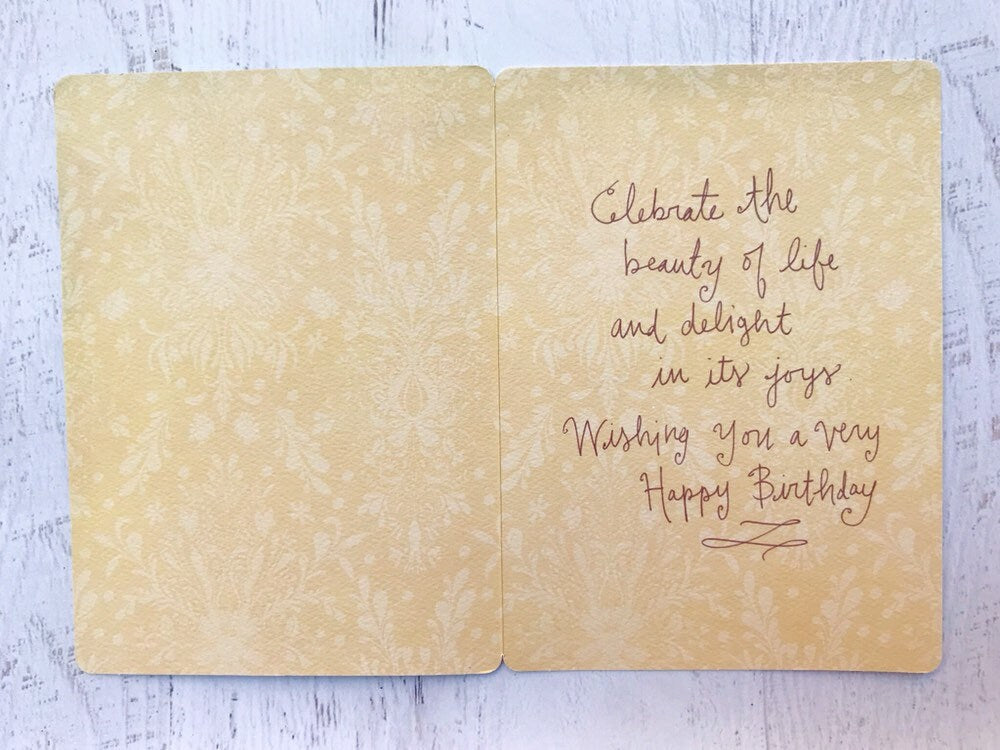 Celebrate the
beauty of life
and delight
in its joys.
Wishing you a very
Happy Birthday